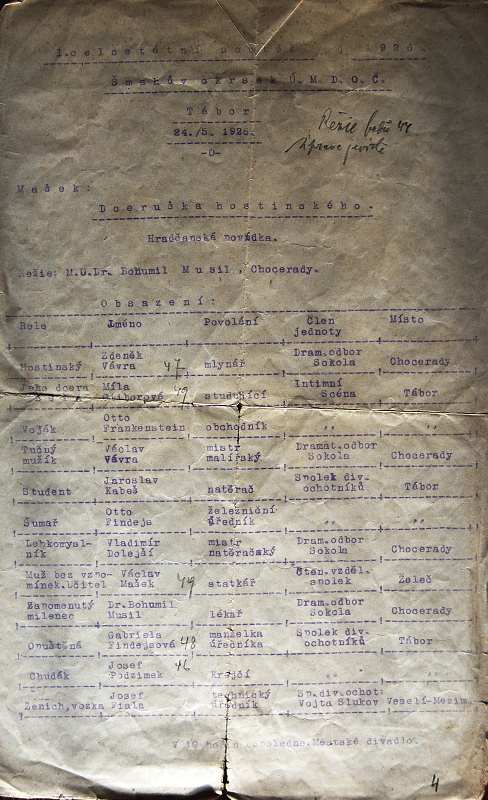 I.celostátní 1926.
Šmahův okrsek Ú.M.D.O.Č.
Tábor
24./5. 1926.
-0-
Režie
Mašek:
Dceruška hostinského.
Hradčanská povídka.
Režie: M.U.Dr. Bohumil Musil, Chocerady.
Obsazení:
Role Jméno Povolání Člen jednoty Místo
Hostinský Zdeněk Vávra 47 mlynář Dram.odbor Sokola Chocerady
Jeho dcera Míla 49 studující Intimní Scéna Tábor
Voják Otto Frankenstein obchodník ,, ,,
Tučný mužík Václav Vávra mistr malířský Dramat.odbor Sokola Chocerady
Student Jaroslav Kabeš natěrač Spolek div- ochotníků Tábor
Šumař Otto Findejs železniční úředník ,, ,,
Lehkomysl- ník Vladimír Dolejší mistr natěračský Dram.odbor Sokola Chocerady
Muž bez vzpo- mínek.Učitel Václav Mašek 49 statkář Čten.vzděl. spolek Želeč
Zapomenutý milenec Dr.Bohumil Musil lékař Dram.odbor Sokola Chocerady
Opuštěná Gabriela Findejsová 48 manželka úředníka Spolek div- ochotníků Tábor
Chudák Josef Podzimek 46 Krejčí ,, ,,
Ženich,vozka Josef Fiala technický úředník Sp.div.ochot: Vojta Slukov Veselí-Mezim.
V 19 hodin odpoledne.Městské divadlo.
4